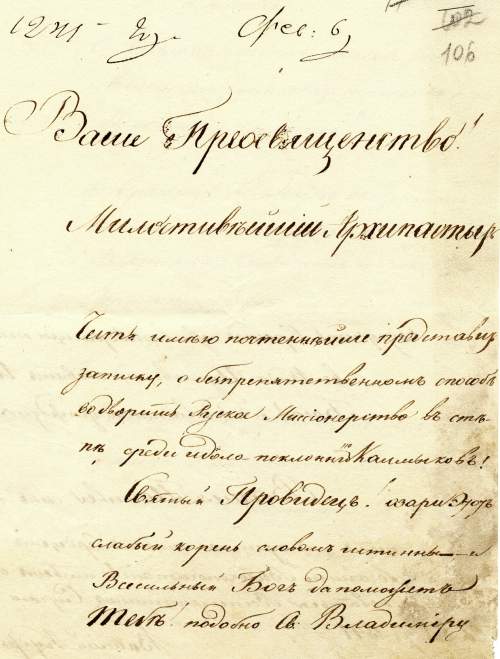 Фев: 6
102
106
Ваше Преосвященство!
Милостивѣйшій Архипастыр
Честь имѣю почтеннѣйше представить
записку, о безпрепятственномъ способѣ
водворить Руское Миссіонерство въ сте-
пѣ среди идолопоклонник Калмыковъ!
Святый Провидецъ! озари этотъ
слабый корень словомъ истинны — и
Всесильный Богъ да поможетъ
Тебѣ! подобно Св. Владимиру